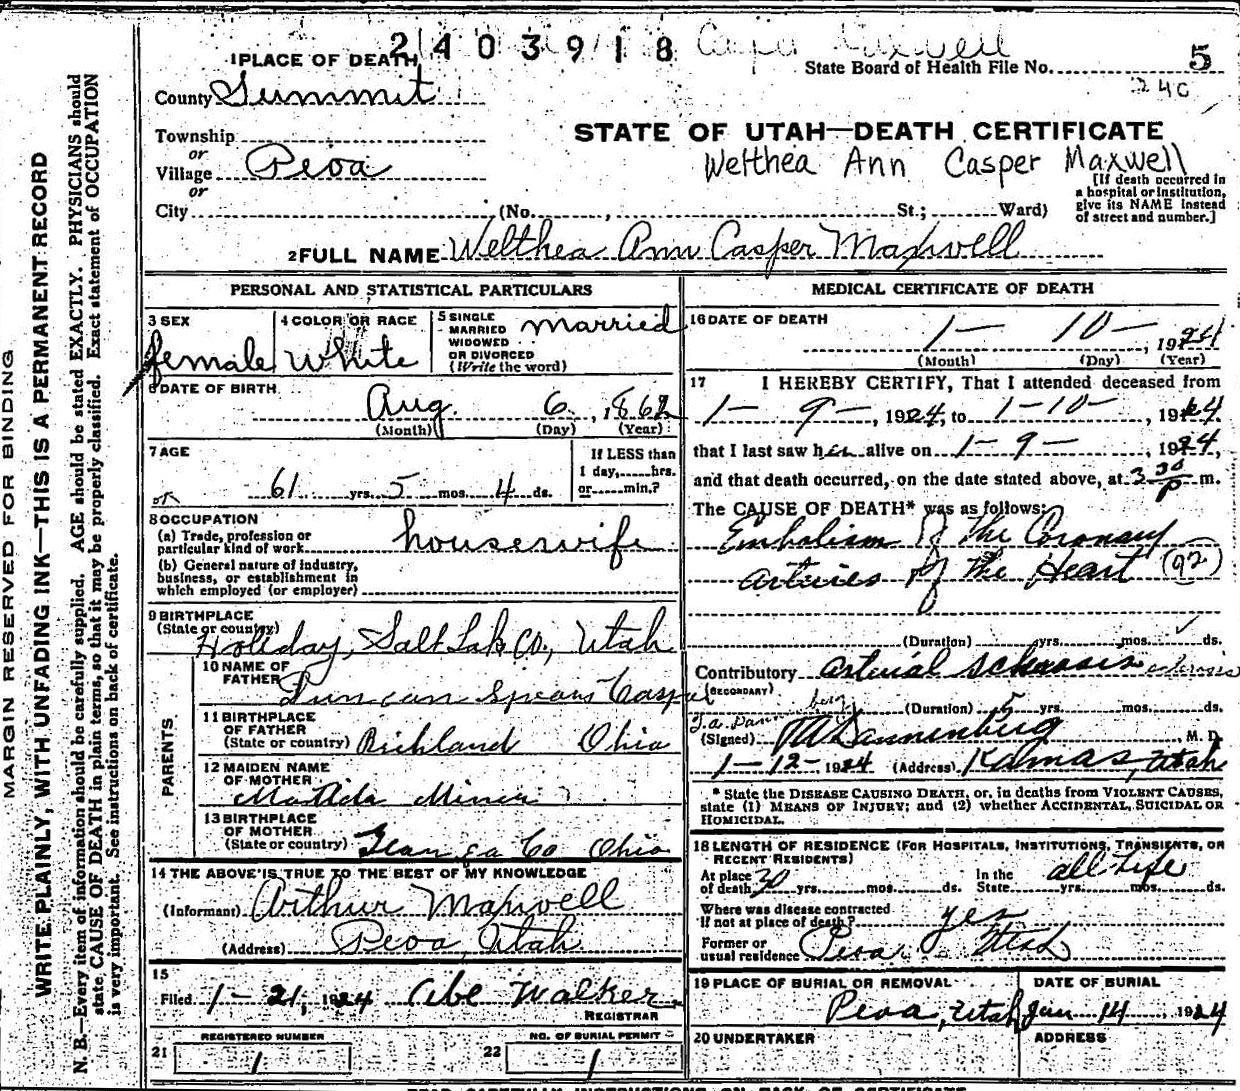 2403918
5
1 PLACE OF DEATH
State Board of Health File No.
24C
County Summit
STATE OF UTAH—DEATH CERTIFICATE
Township
or
Village Peoa
or
Welthea Ann Casper Maxwell
[If death occurred in a hospital or institution, give its NAME instead of street and number.]
City (No. , St.; Ward)
2 FULL NAME Welthea Ann Casper Maxwell
PERSONAL AND STATISTICAL PARTICULARS
3 SEX
female
4 COLOR OR RACE
White
5 SINGLE
MARRIED
WIDOWED
OR DIVORCED
(Write the word)
married
6 DATE OF BIRTH
Aug. 6, 1862
(Month) (Day) (Year)
7 AGE
61 yrs. 5 mos. 4 ds.
If LESS than
1 day, hrs.
or min.?
8 OCCUPATION
(a) Trade, profession or
particular kind of work housewife
(b) General nature of industry,
business, or establishment in
which employed (or employer)
9 BIRTHPLACE
(State or country) Holliday, Salt Lake Co., Utah
PARENTS
10 NAME OF
FATHER Duncan Spears Casper
11 BIRTHPLACE
OF FATHER
(State or country) Richland Ohio
12 MAIDEN NAME
OF MOTHER
Matilda Miner
13 BIRTHPLACE
OF MOTHER
(State or country) Co Ohio
14 THE ABOVE IS TRUE TO THE BEST OF MY KNOWLEDGE
(Informant) Arthur Maxwell
(Address) Peoa, Utah
15
Filed 1-21, 1924 Abe Walker
REGISTRAR
REGISTERED NUMBER
21 1
NO. OF BURIAL PERMIT
22 1
MEDICAL CERTIFICATE OF DEATH
16 DATE OF DEATH
1- 10-, 1924
(Month) (Day) (Year)
17 I HEREBY CERTIFY, That I attended deceased from
1- 9-, 1924, to 1-10-, 1924
that I last saw her alive on 1-9-, 1924,
and that death occurred, on the date stated above, at 3 30 P m.
The CAUSE OF DEATH* was as follows:
Embolism of the Coronary
arteries of the Heart (92)
(Duration) yrs. mos. ds.
Contributory Arterial sclerosis
(SECONDARY)
(Duration) 5 yrs. mos. ds.
(Signed) Dannenberg M. D.
1-12-1924 (Address) Kamas, Utah
* State the DISEASE CAUSING DEATH, or, in deaths from VIOLENT CAUSES,
state (1) MEANS OF INJURY; and (2) whether ACCIDENTAL, SUICIDAL OR
HOMICIDAL.
18 LENGTH OF RESIDENCE (FOR HOSPITALS, INSTITUTIONS, TRANSIENTS, OR
RECENT RESIDENTS)
At place
of death 30 yrs. mos. ds.
In the
State all life yrs. mos. ds.
Where was disease contracted
if not at place of death? yes
Former or
usual residence Peoa Utah
19 PLACE OF BURIAL OR REMOVAL
Peoa, Utah
DATE OF BURIAL
Jan 14, 1924
20 UNDERTAKER
ADDRESS
READ CAREFULLY INSTRUCTIONS ON BACK OF CERTIFICATE
MARGIN RESERVED FOR BINDING
WRITE PLAINLY, WITH UNFADING INK—THIS IS A PERMANENT RECORD
N. B.—Every item of information should be carefully supplied. AGE should be stated EXACTLY. PHYSICIANS should
state CAUSE OF DEATH in plain terms, so that it may be properly classified. Exact statement of OCCUPATION
is very important. See instructions on back of certificate.